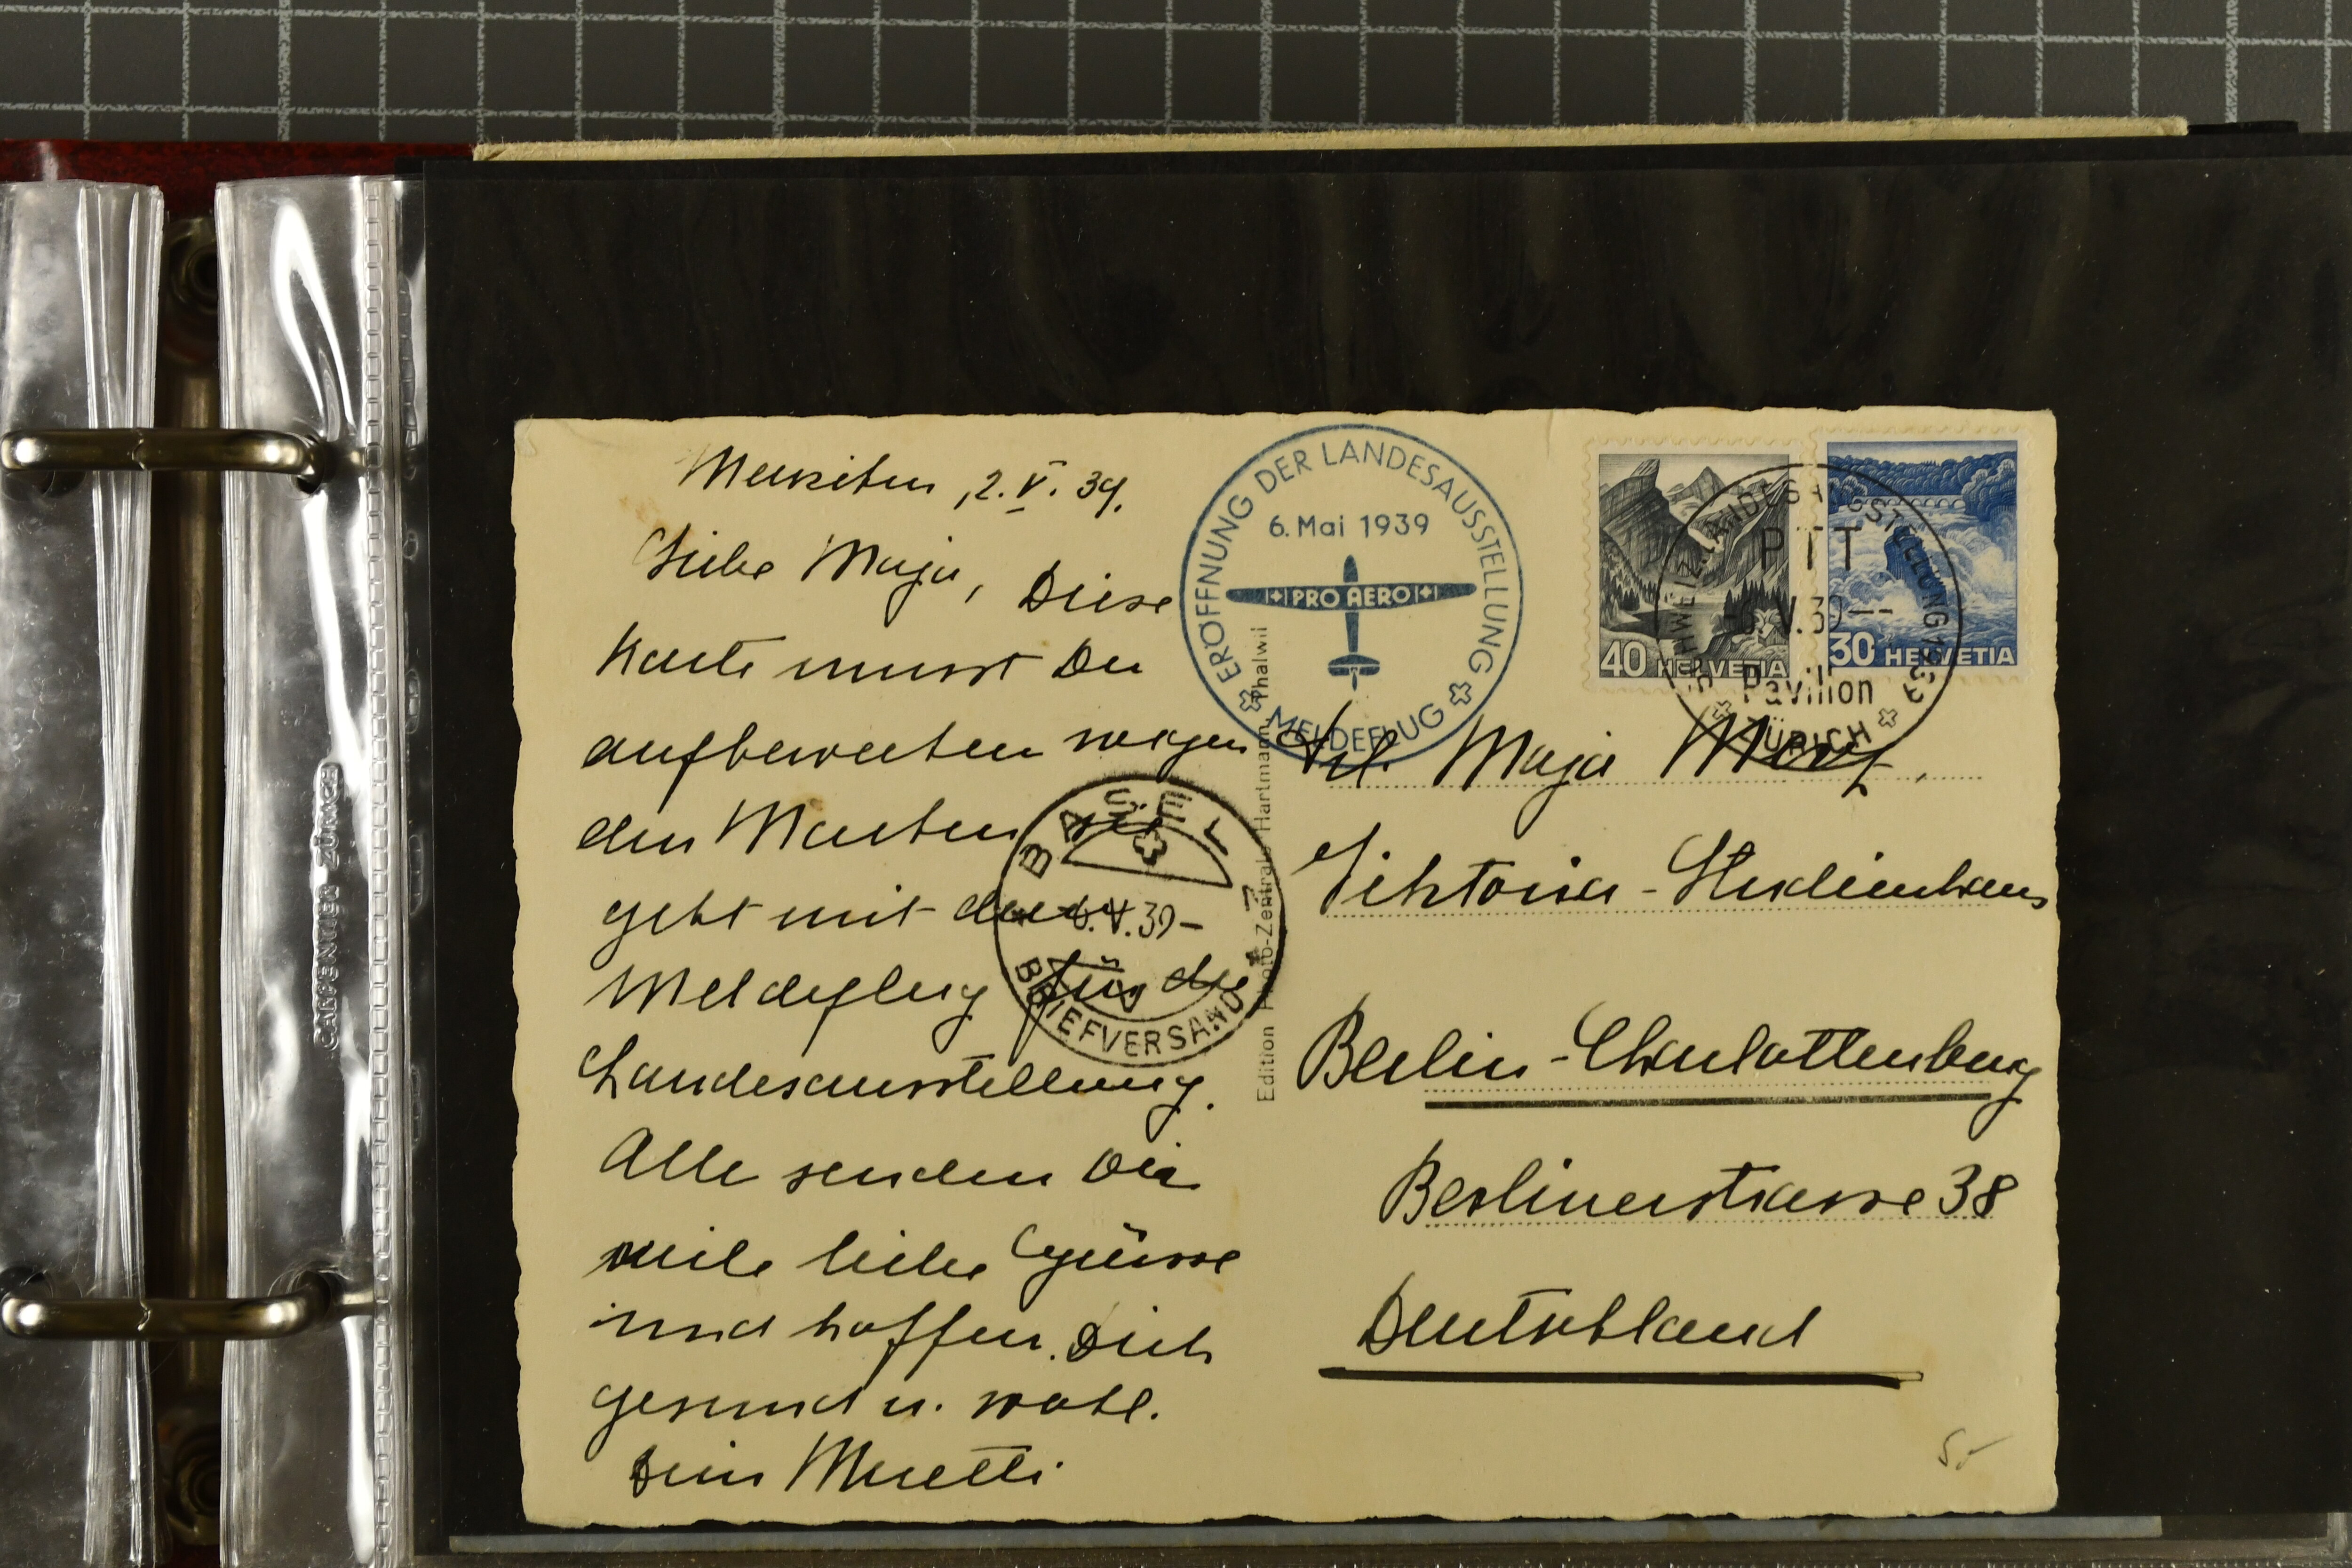 2. V. 39.
Liebe Maja, Diese
Karte musst Du
aufbewarten wegen
den Marken sie
geht mit dem
Meldeflug für die
Landesausstellung.
Alle senden Dir
viele liebe Grüsse
und hoffen Dich
gesund u. wohl.
Dein Muetti
ERÖFFNUNG DER LANDESAUSSTELLUNG
6. Mai 1939
PRO AERO
MELDEFLUG
40 HELVETIA
30 HELVETIA
SCHWEIZ. LANDESAUSSTELLUNG 1939
PTT
-6.V.39--
Pavillon
ZÜRICH
BASEL 2
-6.V.39-
BRIEFVERSAND
Edition Photo-Zentrale Hartmann, Thalwil
Frl. Maja
Viktoria-Studienhaus
Berlin-Charlottenburg
Berlinerstrasse 38
Deutschland
CARPENTIER ZÜRICH